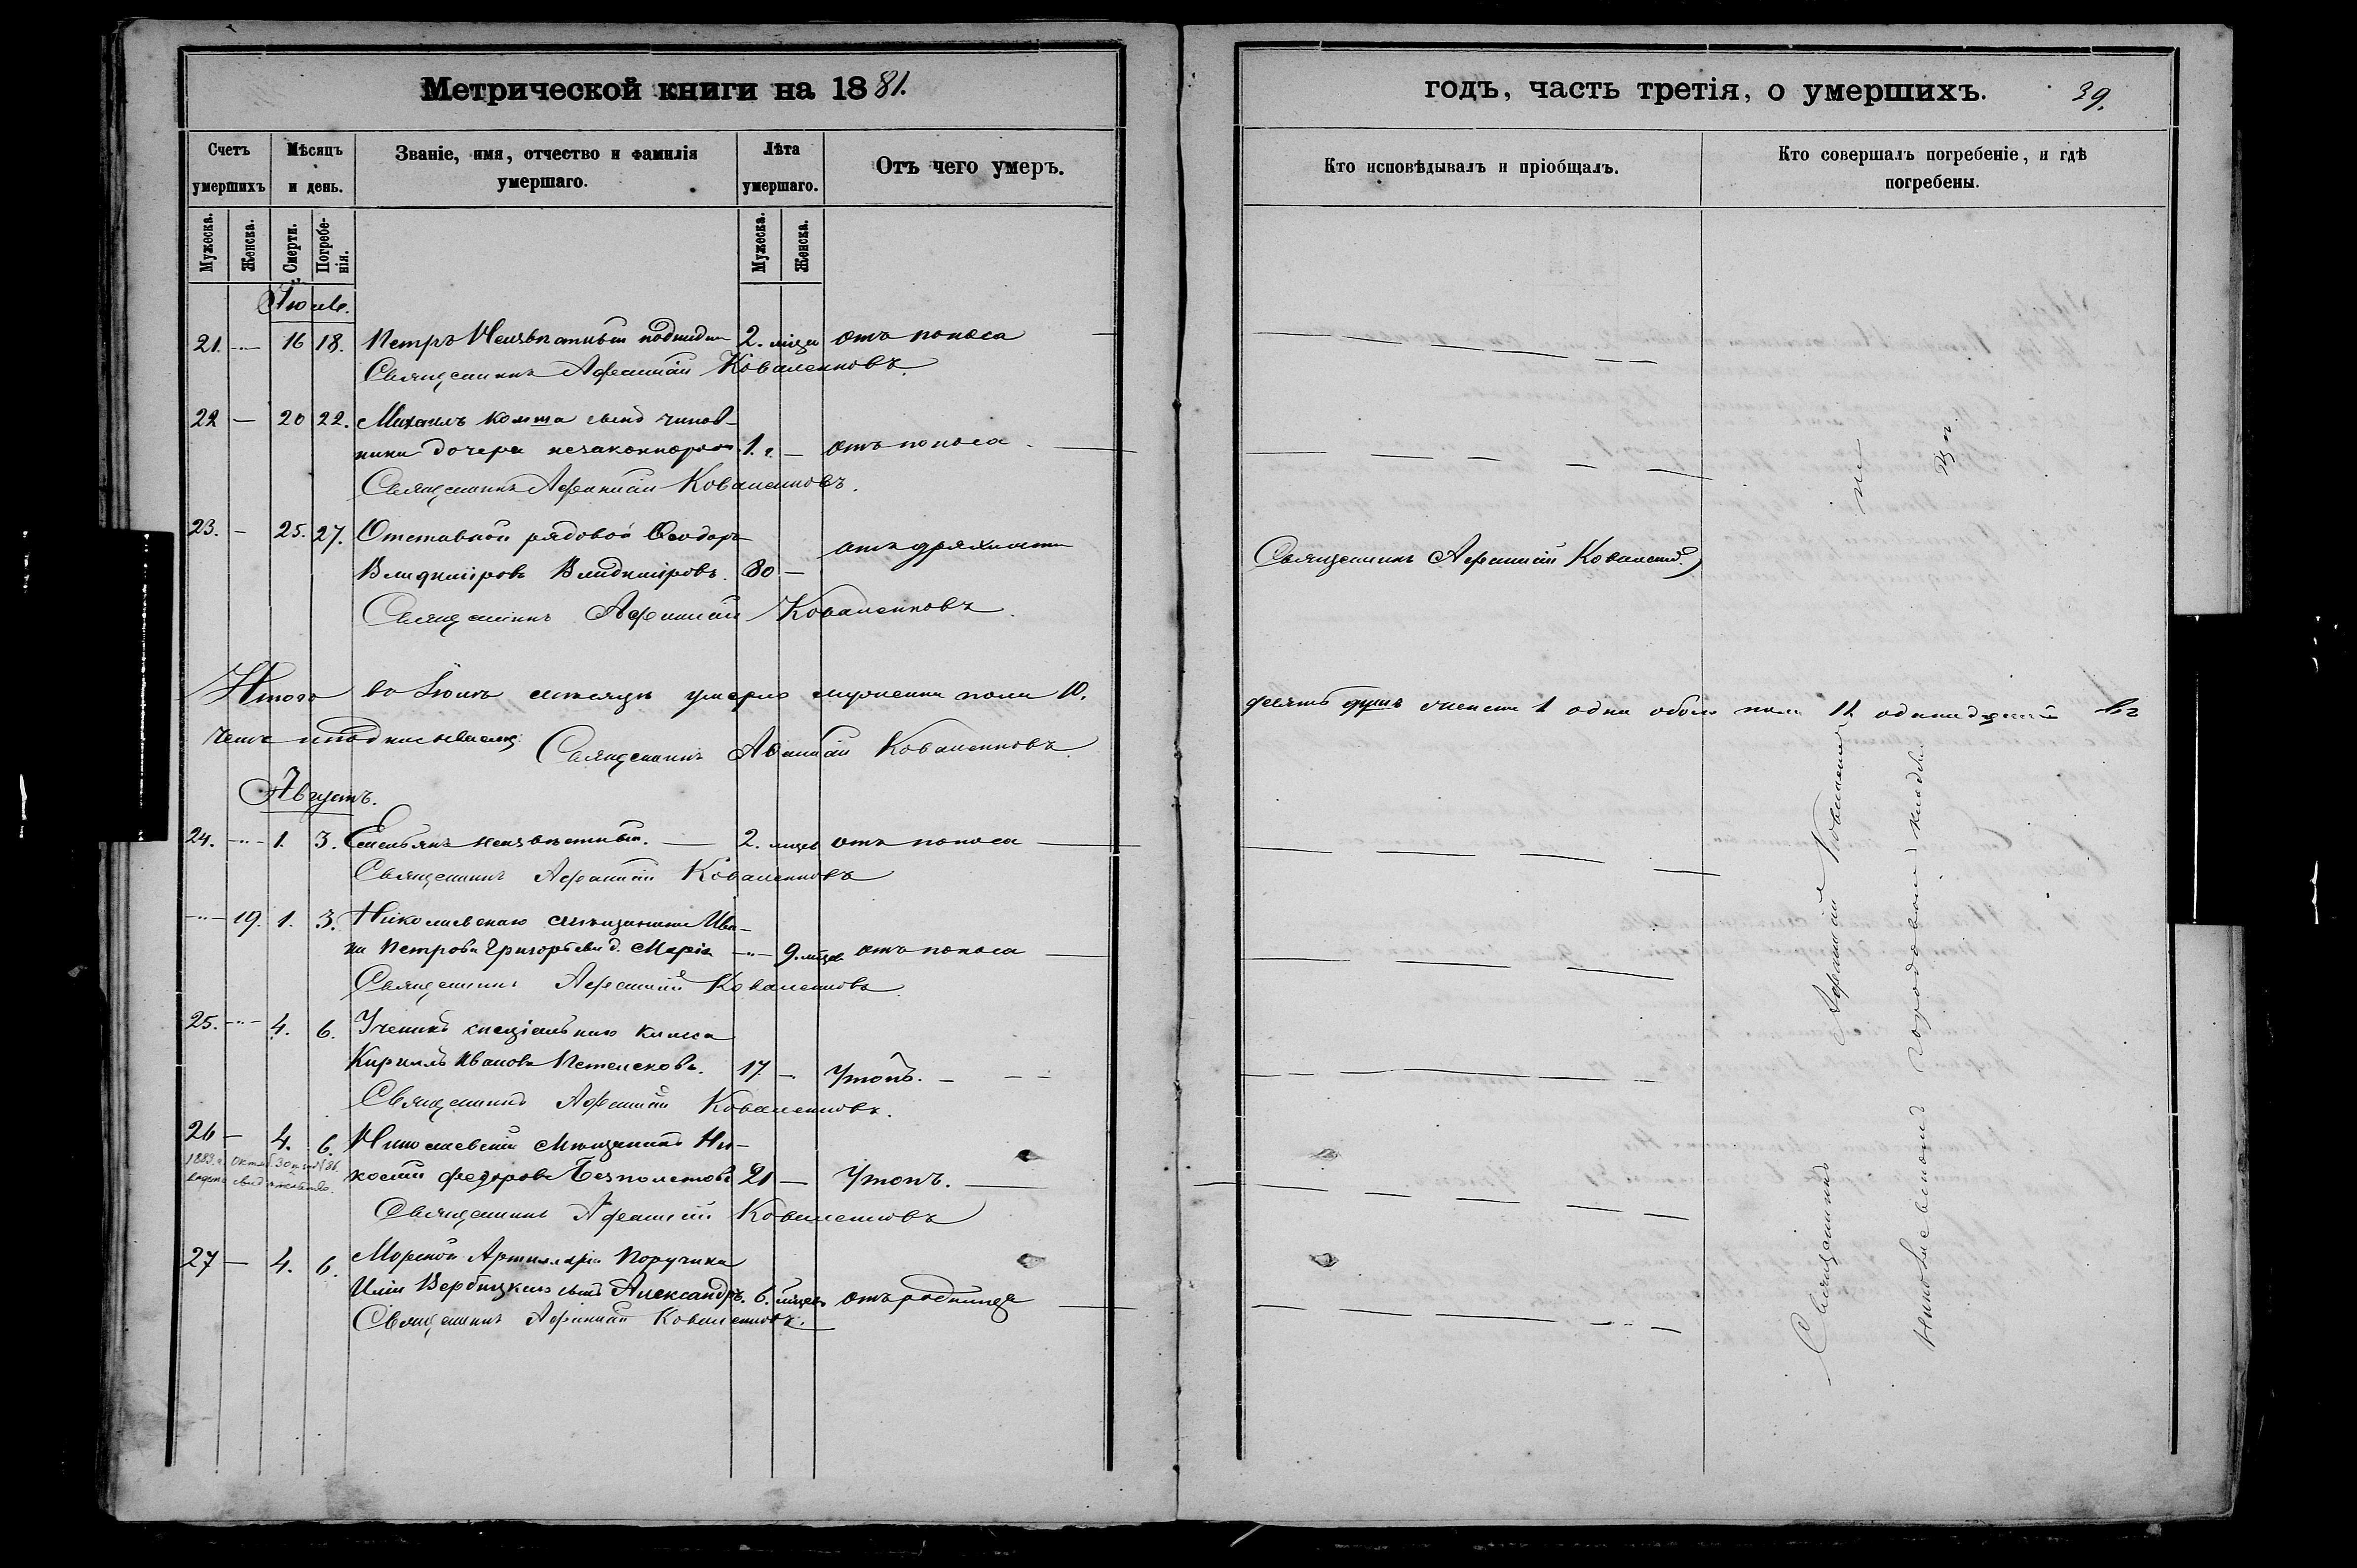 Метрической книги на 1881.
Счетъ умершихъ
Мѣсяцъ и день.
Званіе, имя, отчество и фамилія умершаго.
Лѣта умершаго.
Отъ чего умеръ.
Мужеска.
Женска.
Смерти.
Погребенія.
Мужеска.
Женска.
Іюль.
21. 16 18. Петръ Неизвѣстный 2. мѣся отъ поноса
Священникъ Афанасій Коваленковъ.
22 — 20 22. Михаилъ сынъ чинов-
ника дочери незаконнорож. 1. г. — отъ поноса
Священникъ Афанасій Коваленковъ.
23. — 25. 27. Отставной рядовой Ѳеодоръ
Владиміровъ Владиміровъ. 80 — отъ дряхлости
Священникъ Афанасій Коваленковъ.
Итого во Іюлѣ мѣсяцѣ умерло мужеска пола 10.
чемъ и подписываемся Священникъ Афанасій Коваленковъ.
Августъ.
24. 1. 3. Емельянъ неизвѣстный. — 2. мѣсяц отъ поноса
Священникъ Афанасій Коваленковъ
19. 1. 3. Николаевскаго мѣщанина Ива-
на Петрова Григорьева д. Марія 9. мѣсяц отъ поноса
Священникъ Афанасій Коваленковъ
25. 4. 6. Ученикъ спеціальнаго класса
Кирилъ Ивановъ 17. — Утопъ.
Священникъ Афанасій Коваленковъ.
26 — 4. 6. Николаевскій мѣщанинъ Ни-
колай Федоровъ Безполетовъ 21 — Утопъ.
1883. г. Октяб. 30
Священникъ Афанасій Коваленковъ
27 — 4. 6. Морской Артиллеріи Поручика
Иліи Вербицкаго сынъ Александръ. 6. мѣсяц отъ родимца
Священникъ Афанасій Коваленковъ.
годъ, часть третія, о умершихъ. 39.
Кто исповѣдывалъ и пріобщалъ.
Кто совершалъ погребеніе, и гдѣ погребены.
Священникъ Афанасій Коваленк.
десять душъ женска 1 одна обоего пола 11 одинадцать въ
Священникъ Афанасій Коваленковъ на
Николаевскомъ городовомъ кладби
щѣ.